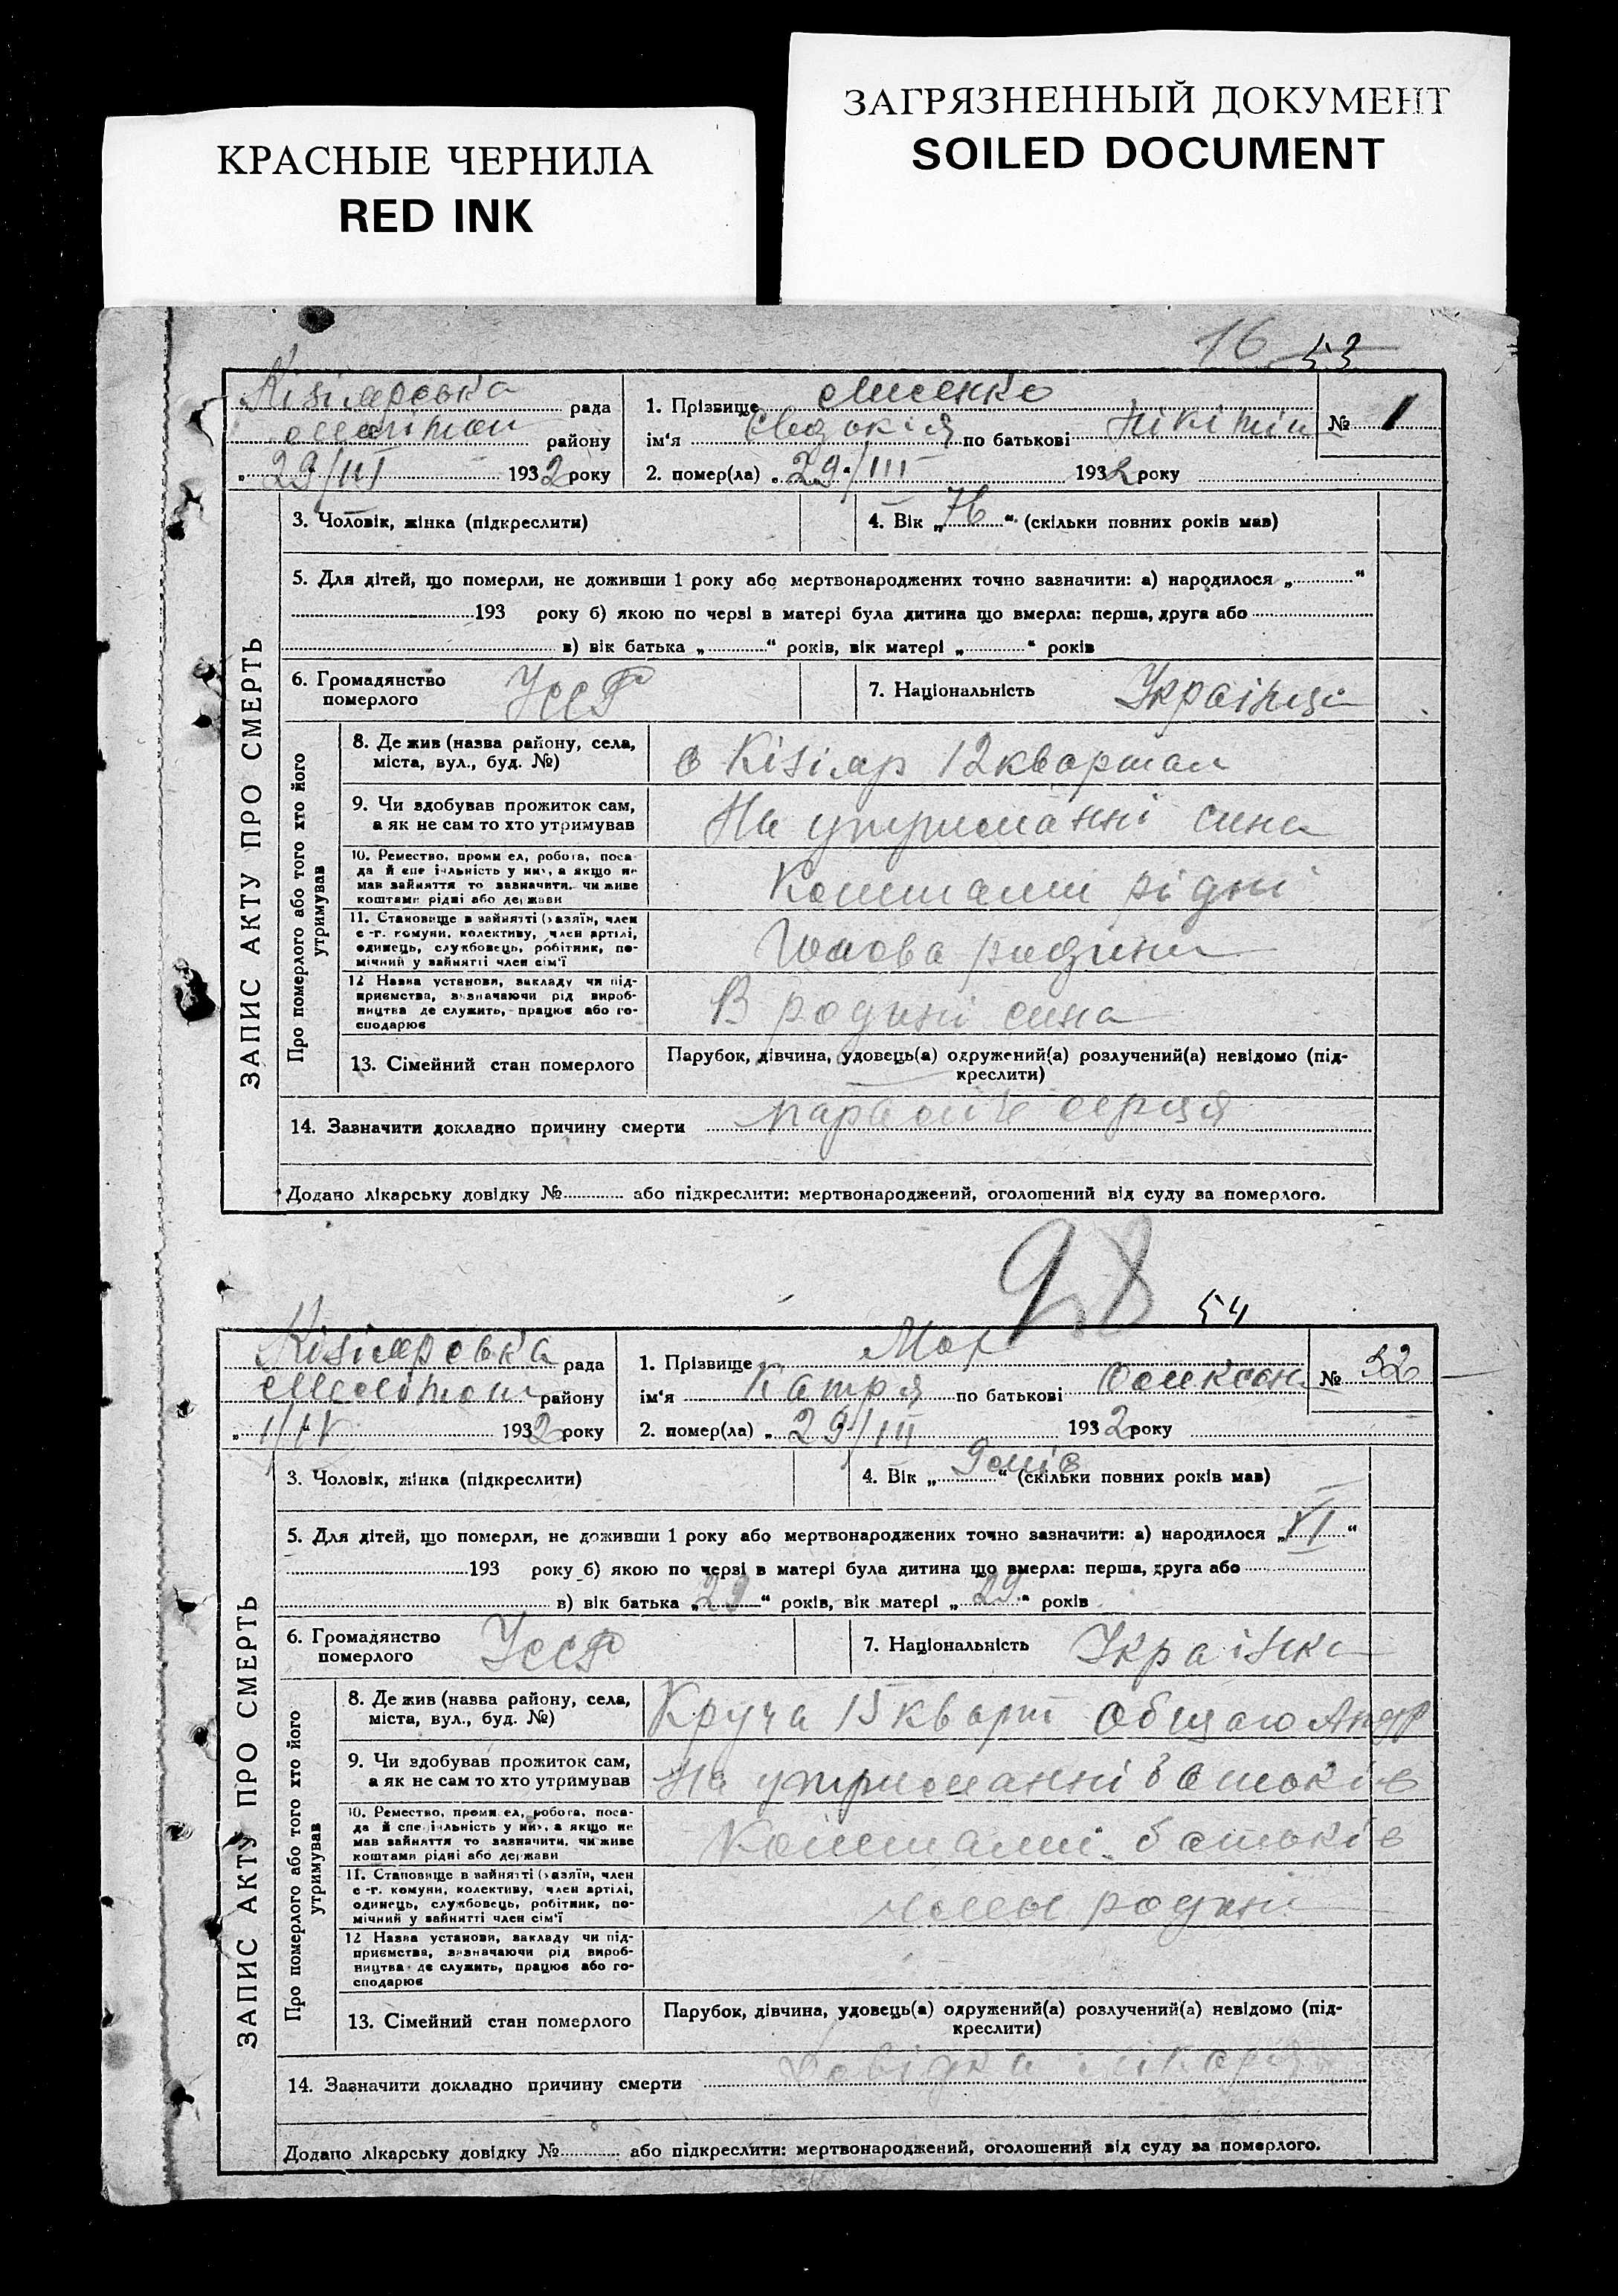 КРАСНЫЕ ЧЕРНИЛА
RED INK
ЗАГРЯЗНЕННЫЙ ДОКУМЕНТ
SOILED DOCUMENT
16 53
ЗАПИС АКТУ ПРО СМЕРТЬ
Кізіярська рада
району
„ 29/III 1932 року
1. Прізвище Лисенко
ім'я Євдокія по батькові Нікітін
№ 1
2. помер(ла) „ 29/III 1932 року
3. Чоловік, жінка (підкреслити)
4. Вік „76“ (скільки повних років мав)
5. Для дітей, що померли, не доживши 1 року або мертвонароджених точно зазначити: а) народилося „ “
193 року б) якою по черзі в матері була дитина що вмерла: перша, друга або
в) вік батька „ “ років, вік матері „ “ років
6. Громадянство померлого УССР
7. Національність
Про померлого або того хто його утримував
8. Де жив (назва району, села, міста, вул., буд. №)
с Кізіяр 12 квартал
9. Чи здобував прожиток сам, а як не сам то хто утримував
На утриманні сина
10. Ремество, промисел, робота, посада й спеціяльність у них, а якщо не мав зайняття то зазначити, чи живе коштами рідні або держави
Коштами рідні
11. Становище в зайнятті (хазяїн, член с.-г. комуни, колективу, член артілі, одинець, службовець, робітник, помічний у зайнятті член сім'ї
Голова родини
12 Назва установи, закладу чи підприємства, зазначаючи рід виробництва де служить, працює або господарює
В родині сина
13. Сімейний стан померлого
Парубок, дівчина, удовець(а) одружений(а) розлучений(а) невідомо (підкреслити)
14. Зазначити докладно причину смерти серця
Додано лікарську довідку № або підкреслити: мертвонароджений, оголошений від суду за померлого.
98 54
ЗАПИС АКТУ ПРО СМЕРТЬ
Кізіярська рада
району
„ 1/IV 1932 року
1. Прізвище Мох
ім'я Катря по батькові Олексан
№ 32
2. помер(ла) „ 29/III 1932 року
3. Чоловік, жінка (підкреслити)
4. Вік „ “ (скільки повних років мав)
5. Для дітей, що померли, не доживши 1 року або мертвонароджених точно зазначити: а) народилося „VI“
193 року б) якою по черзі в матері була дитина що вмерла: перша, друга або
в) вік батька „29“ років, вік матері „29“ років
6. Громадянство померлого УССР
7. Національність Українка
Про померлого або того хто його утримував
8. Де жив (назва району, села, міста, вул., буд. №)
Круча 15 кварт
9. Чи здобував прожиток сам, а як не сам то хто утримував
На утриманні батьків
10. Ремество, промисел, робота, посада й спеціяльність у них, а якщо не мав зайняття то зазначити, чи живе коштами рідні або держави
Коштами батьків
11. Становище в зайнятті (хазяїн, член с.-г. комуни, колективу, член артілі, одинець, службовець, робітник, помічний у зайнятті член сім'ї
родини
12 Назва установи, закладу чи підприємства, зазначаючи рід виробництва де служить, працює або господарює
13. Сімейний стан померлого
Парубок, дівчина, удовець(а) одружений(а) розлучений(а) невідомо (підкреслити)
14. Зазначити докладно причину смерти Довідка лікаря
Додано лікарську довідку № або підкреслити: мертвонароджений, оголошений від суду за померлого.